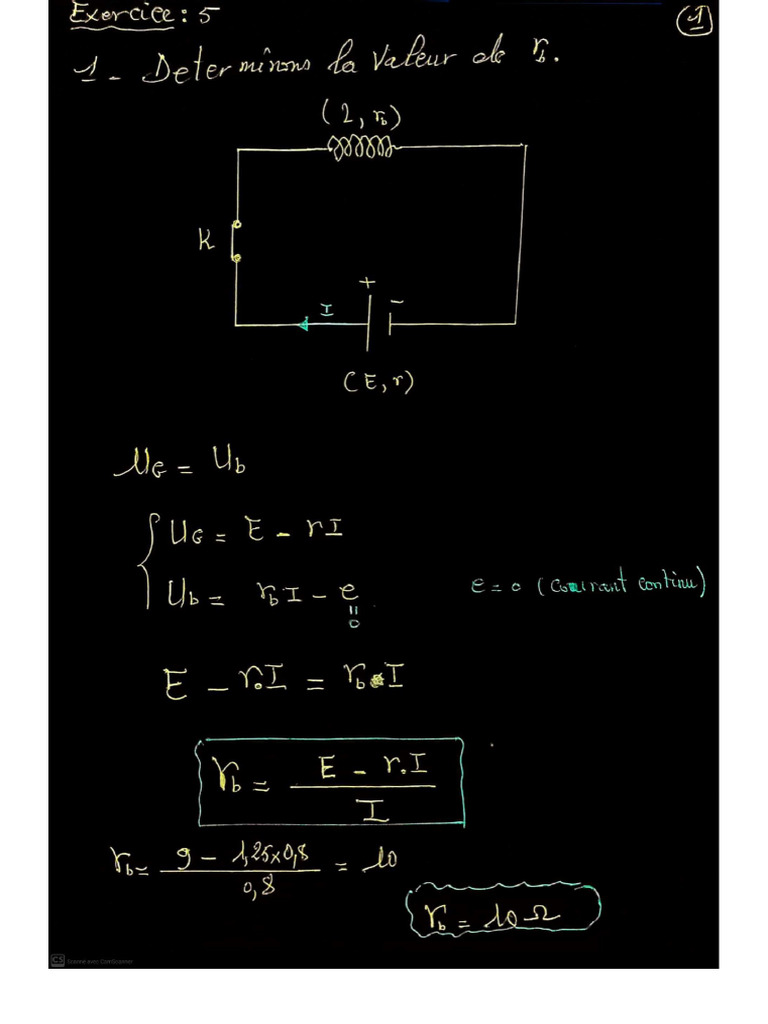 Exercice : 5
1
1 - Determinons la valeur de r_b.
(L, r_b)
K
+
-
I
(E, r)
U_G = U_b
U_G = E - rI
U_b = r_b I - e
e = 0 (courant continu)
"
0
E - r.I = r_b.I
r_b = (E - r.I) / I
r_b = (9 - 1,25x0,8) / 0,8 = 10
r_b = 10 Ω
CS Scanné avec CamScanner